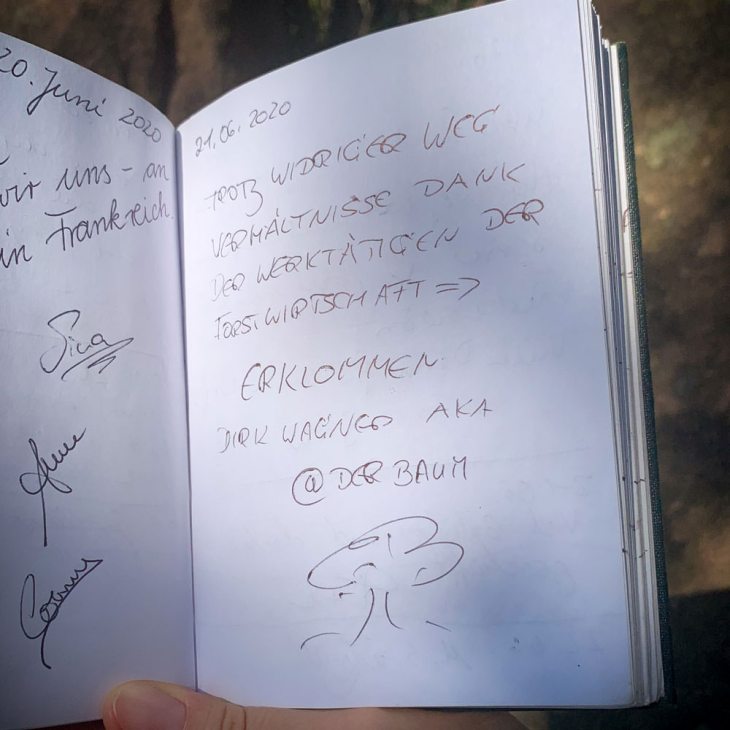 20. Juni 2020
wir uns - an
in Frankreich
21.06.2020
TROTZ WIDRIGER WEG
VERHÄLTNISSE DANK
DER WERKTÄTIGEN DER
FORSTWIRTSCHAFT =>
ERKLOMMEN
DIRK WAGNER AKA
@DERBAUM